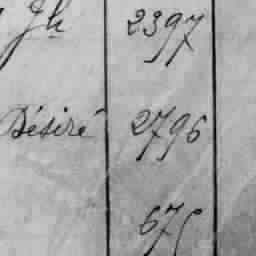 Jh 2397
Désiré 2796
675